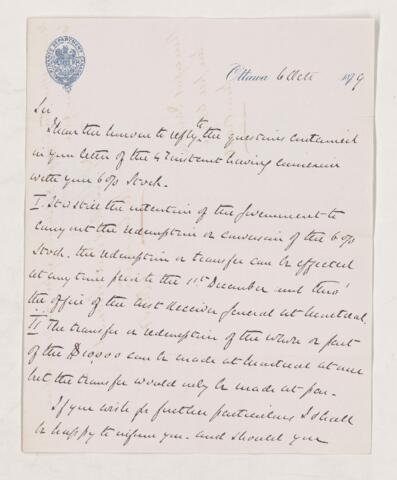 FINANCE DEPARTMENT CANADA
Ottawa 6 Octr 1879
Sir
I have the honour to reply to the questions contained
in your letter of the 4th instant having
with your 6 o/o Stock.
I. It is still the intention of the Government to
carry out the redemption or conversion of the 6 o/o
Stock. the redemption or transfer can be effected
at any time prior to the 1st December next thro'
the office of the Asst Receiver General at Montreal.
II The transfer or redemption of the whole or part
of the $10000 can be made at Montreal at once
but the transfer would only be made at par.
If you wish for further particulars I shall
be happy to inform you. and should you